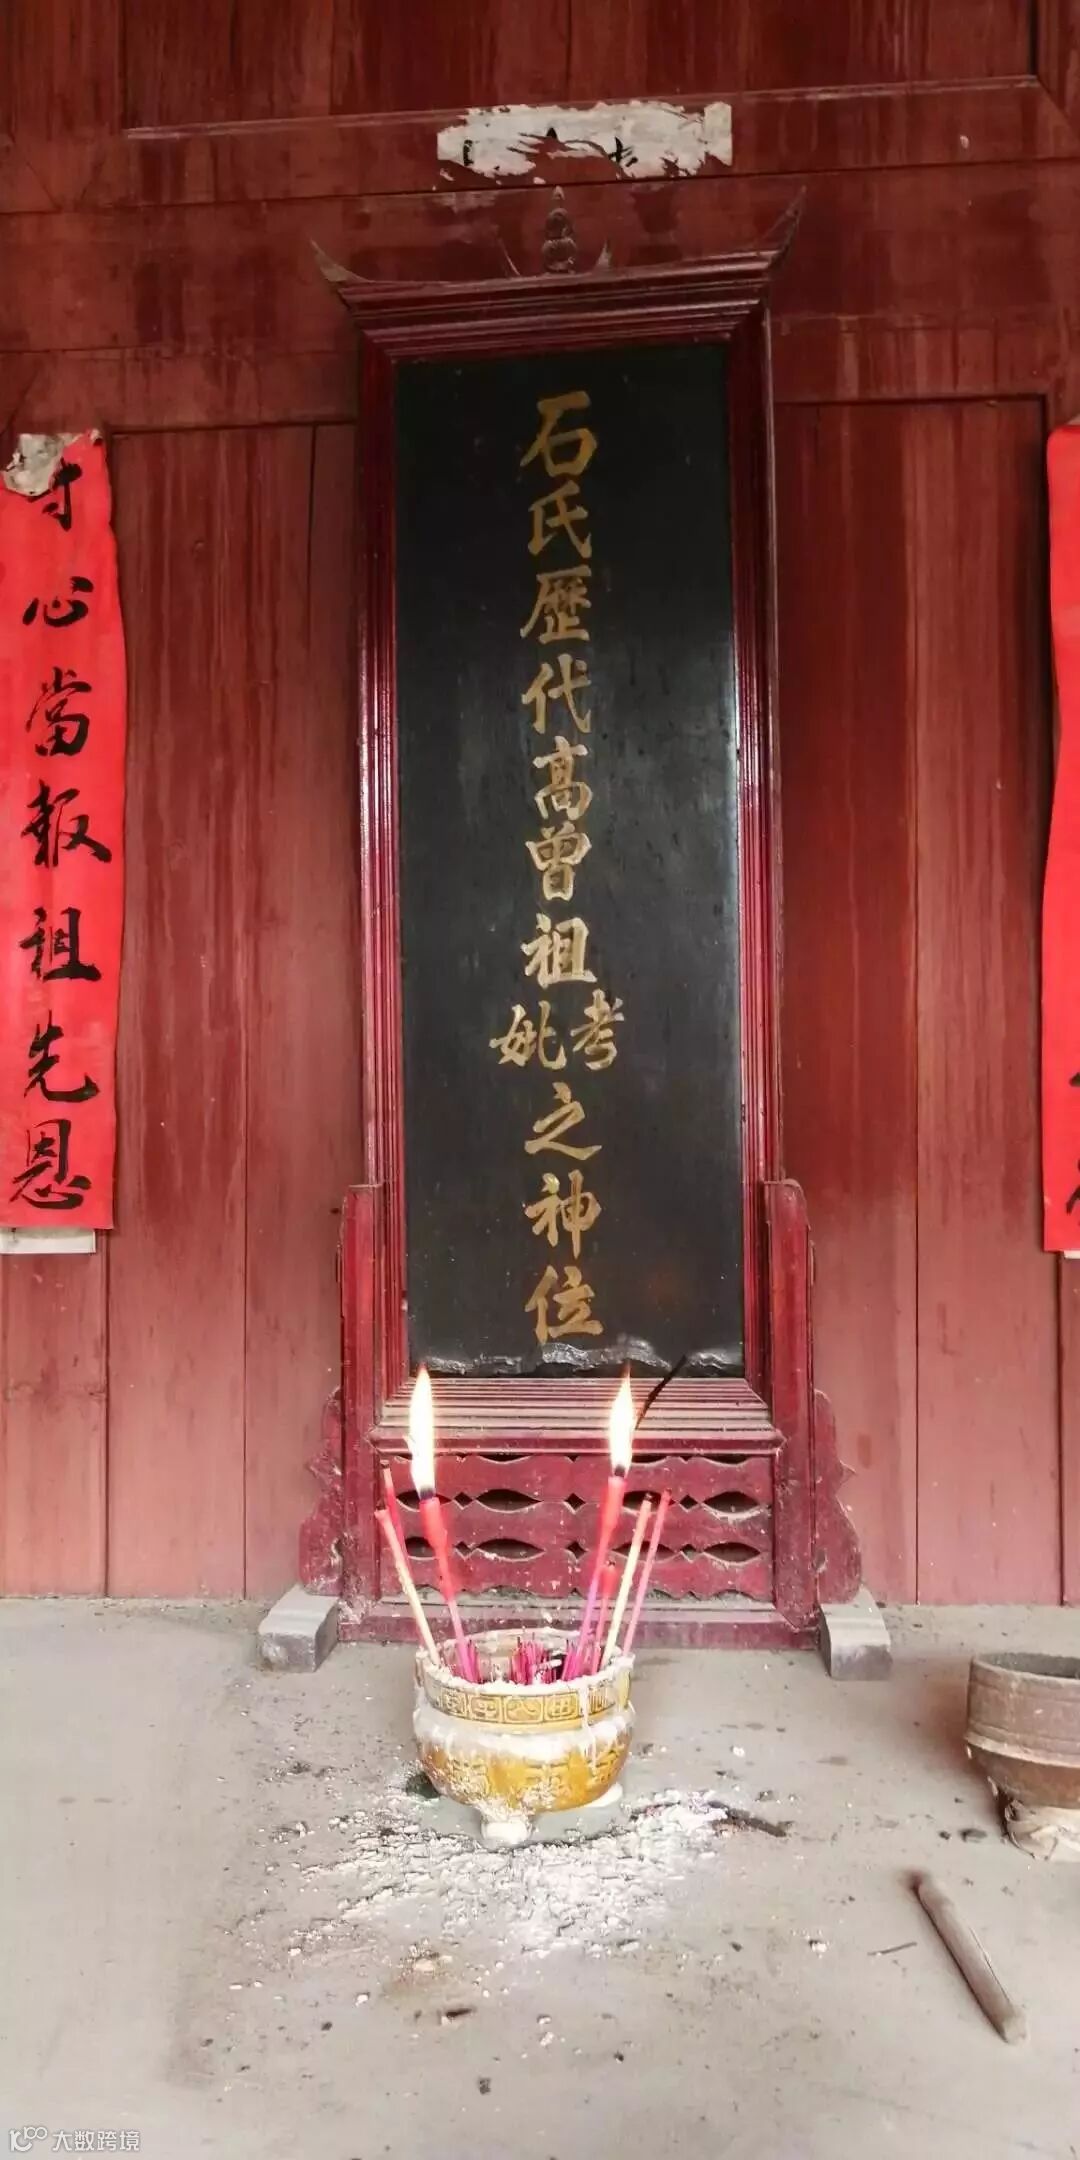 石氏歷代高曾祖考妣之神位
寸心當報祖先恩
大数跨境